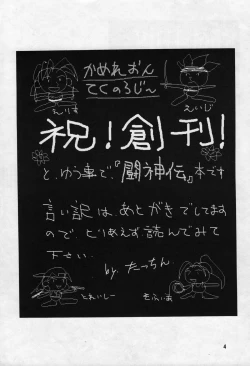 かめれおん
てくのろじ〜
えりす
えいじ
祝!創刊!
と、ゆう事で『闘神伝』本です
言い訳は、あとがきでしてます
ので、とりあえず読んでみて
下さい。
by. たっちん
とれいしー
そふぃあ
4